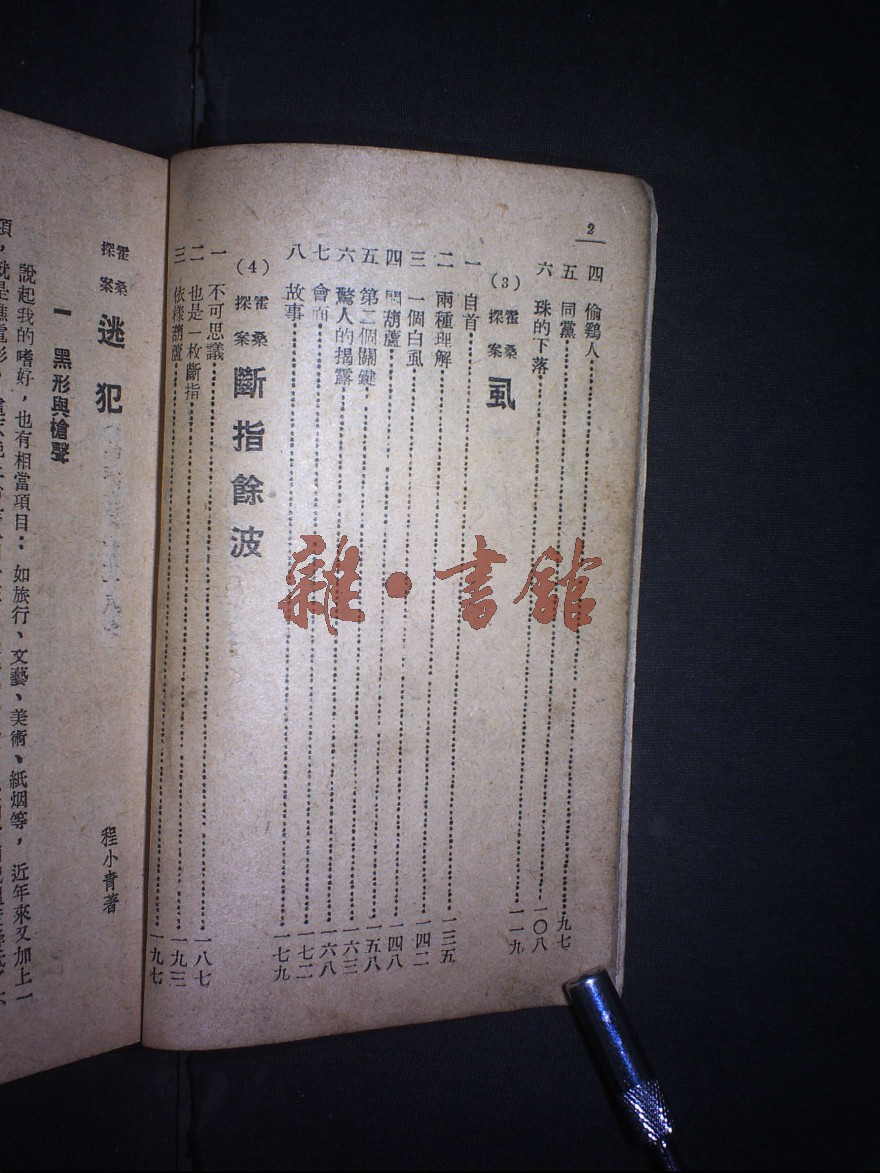 2
四　偷鷄人……九七
五　同黨……一〇八
六　珠的下落……一一九
(3) 霍桑探案 虱
一　自首……一三五
二　兩種理解……一四二
三　一個白虱……一四八
四　悶葫蘆……一五八
五　第二個關鍵……一六三
六　驚人的揭露……一六八
七　會面……一七二
八　故事……一七九
(4) 霍桑探案 斷指餘波
一　不可思議……一八七
二　也是一枚斷指……一九三
三　依樣葫蘆……一九七
霍桑探案 逃犯 程小青著
一　黑形與槍聲
說起我的嗜好，也有相當項目：如旅行、文藝、美術、紙烟等，近年來又加上一
項，就是瞧電影。
雜·書館